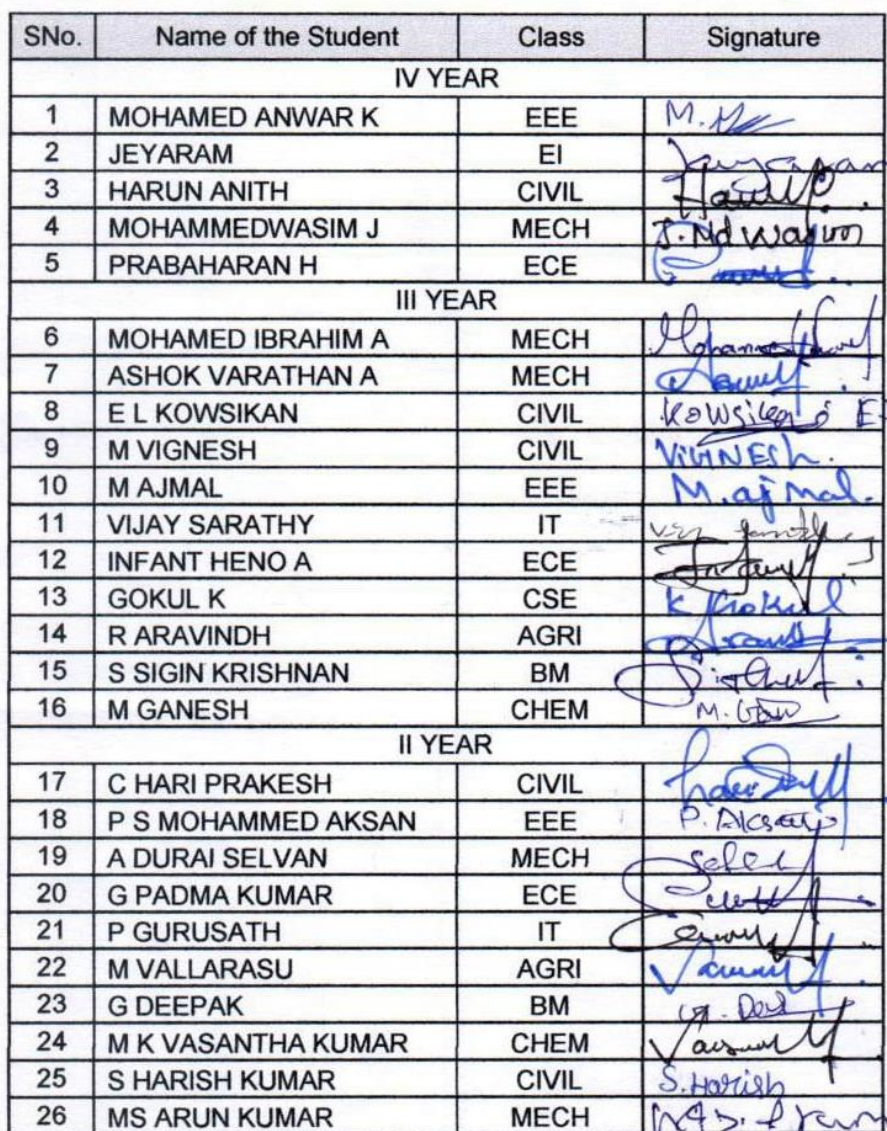 SNo. Name of the Student Class Signature
IV YEAR
1 MOHAMED ANWAR K EEE M.
2 JEYARAM EI Jeyaram
3 HARUN ANITH CIVIL
4 MOHAMMEDWASIM J MECH J. Md Wasim
5 PRABAHARAN H ECE
III YEAR
6 MOHAMED IBRAHIM A MECH
7 ASHOK VARATHAN A MECH
8 E L KOWSIKAN CIVIL Kowsikan E
9 M VIGNESH CIVIL
10 M AJMAL EEE M. ajmal.
11 VIJAY SARATHY IT
12 INFANT HENO A ECE
13 GOKUL K CSE K Gokul
14 R ARAVINDH AGRI
15 S SIGIN KRISHNAN BM
16 M GANESH CHEM M.
II YEAR
17 C HARI PRAKESH CIVIL
18 P S MOHAMMED AKSAN EEE P.
19 A DURAI SELVAN MECH
20 G PADMA KUMAR ECE
21 P GURUSATH IT
22 M VALLARASU AGRI
23 G DEEPAK BM
24 M K VASANTHA KUMAR CHEM
25 S HARISH KUMAR CIVIL S. Harish
26 MS ARUN KUMAR MECH